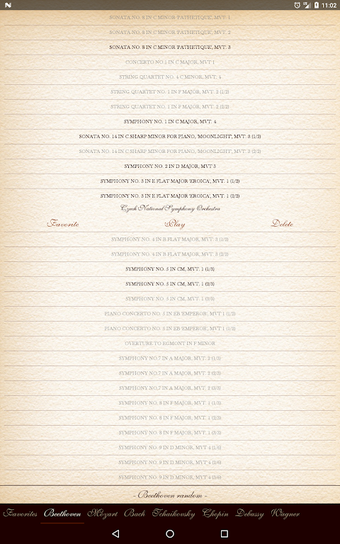 11:02
SONATA NO. 8 IN C MINOR 'PATHETIQUE', MVT. 1
SONATA NO. 8 IN C MINOR 'PATHETIQUE', MVT. 2
SONATA NO. 8 IN C MINOR 'PATHETIQUE', MVT. 3
CONCERTO NO 1 IN C MAJOR, MVT 1
STRING QUARTET NO. 4 C MINOR, MVT. 4
STRING QUARTET NO. 1 IN F MAJOR, MVT. 2 (1/2)
STRING QUARTET NO. 1 IN F MAJOR, MVT. 2 (2/2)
SYMPHONY NO. 1 IN C MAJOR, MVT. 4
SONATA NO. 14 IN C SHARP MINOR FOR PIANO, 'MOONLIGHT', MVT. 3 (1/2)
SONATA NO. 14 IN C SHARP MINOR FOR PIANO, 'MOONLIGHT', MVT. 3 (2/2)
SYMPHONY NO. 2 IN D MAJOR, MVT 3
SYMPHONY NO. 3 IN E FLAT MAJOR 'EROICA', MVT. 1 (1/3)
SYMPHONY NO. 3 IN E FLAT MAJOR 'EROICA', MVT. 1 (2/3)
Czech National Symphony Orchestra
Favorite Play Delete
SYMPHONY NO. 4 IN B FLAT MAJOR, MVT. 3
SYMPHONY NO. 4 IN B FLAT MAJOR, MVT. 3
SYMPHONY NO. 5 IN CM, MVT. 1 (1/3)
SYMPHONY NO. 5 IN CM, MVT. 1 (2/3)
SYMPHONY NO. 5 IN CM, MVT. 1 (3/3)
PIANO CONCERTO NO. 5 IN EB 'EMPEROR', MVT 1
PIANO CONCERTO NO. 5 IN EB 'EMPEROR', MVT. 1
OVERTURE TO EGMONT IN F MINOR
SYMPHONY NO.7 IN A MAJOR, MVT.
SYMPHONY NO.7 IN A MAJOR, MVT.
SYMPHONY NO.7 IN A MAJOR, MVT.
SYMPHONY NO. 8 IN F MAJOR, MVT. 1
SYMPHONY NO. 8 IN F MAJOR, MVT. 1
SYMPHONY NO. 8 IN F MAJOR, MVT. 1
SYMPHONY NO. 9 IN D MINOR, MVT.
SYMPHONY NO. 9 IN D MINOR, MVT.
SYMPHONY NO. 9 IN D MINOR, MVT.
- Beethoven random -
Favorites Beethoven Mozart Bach Tchaikovsky Chopin Debussy Wagner